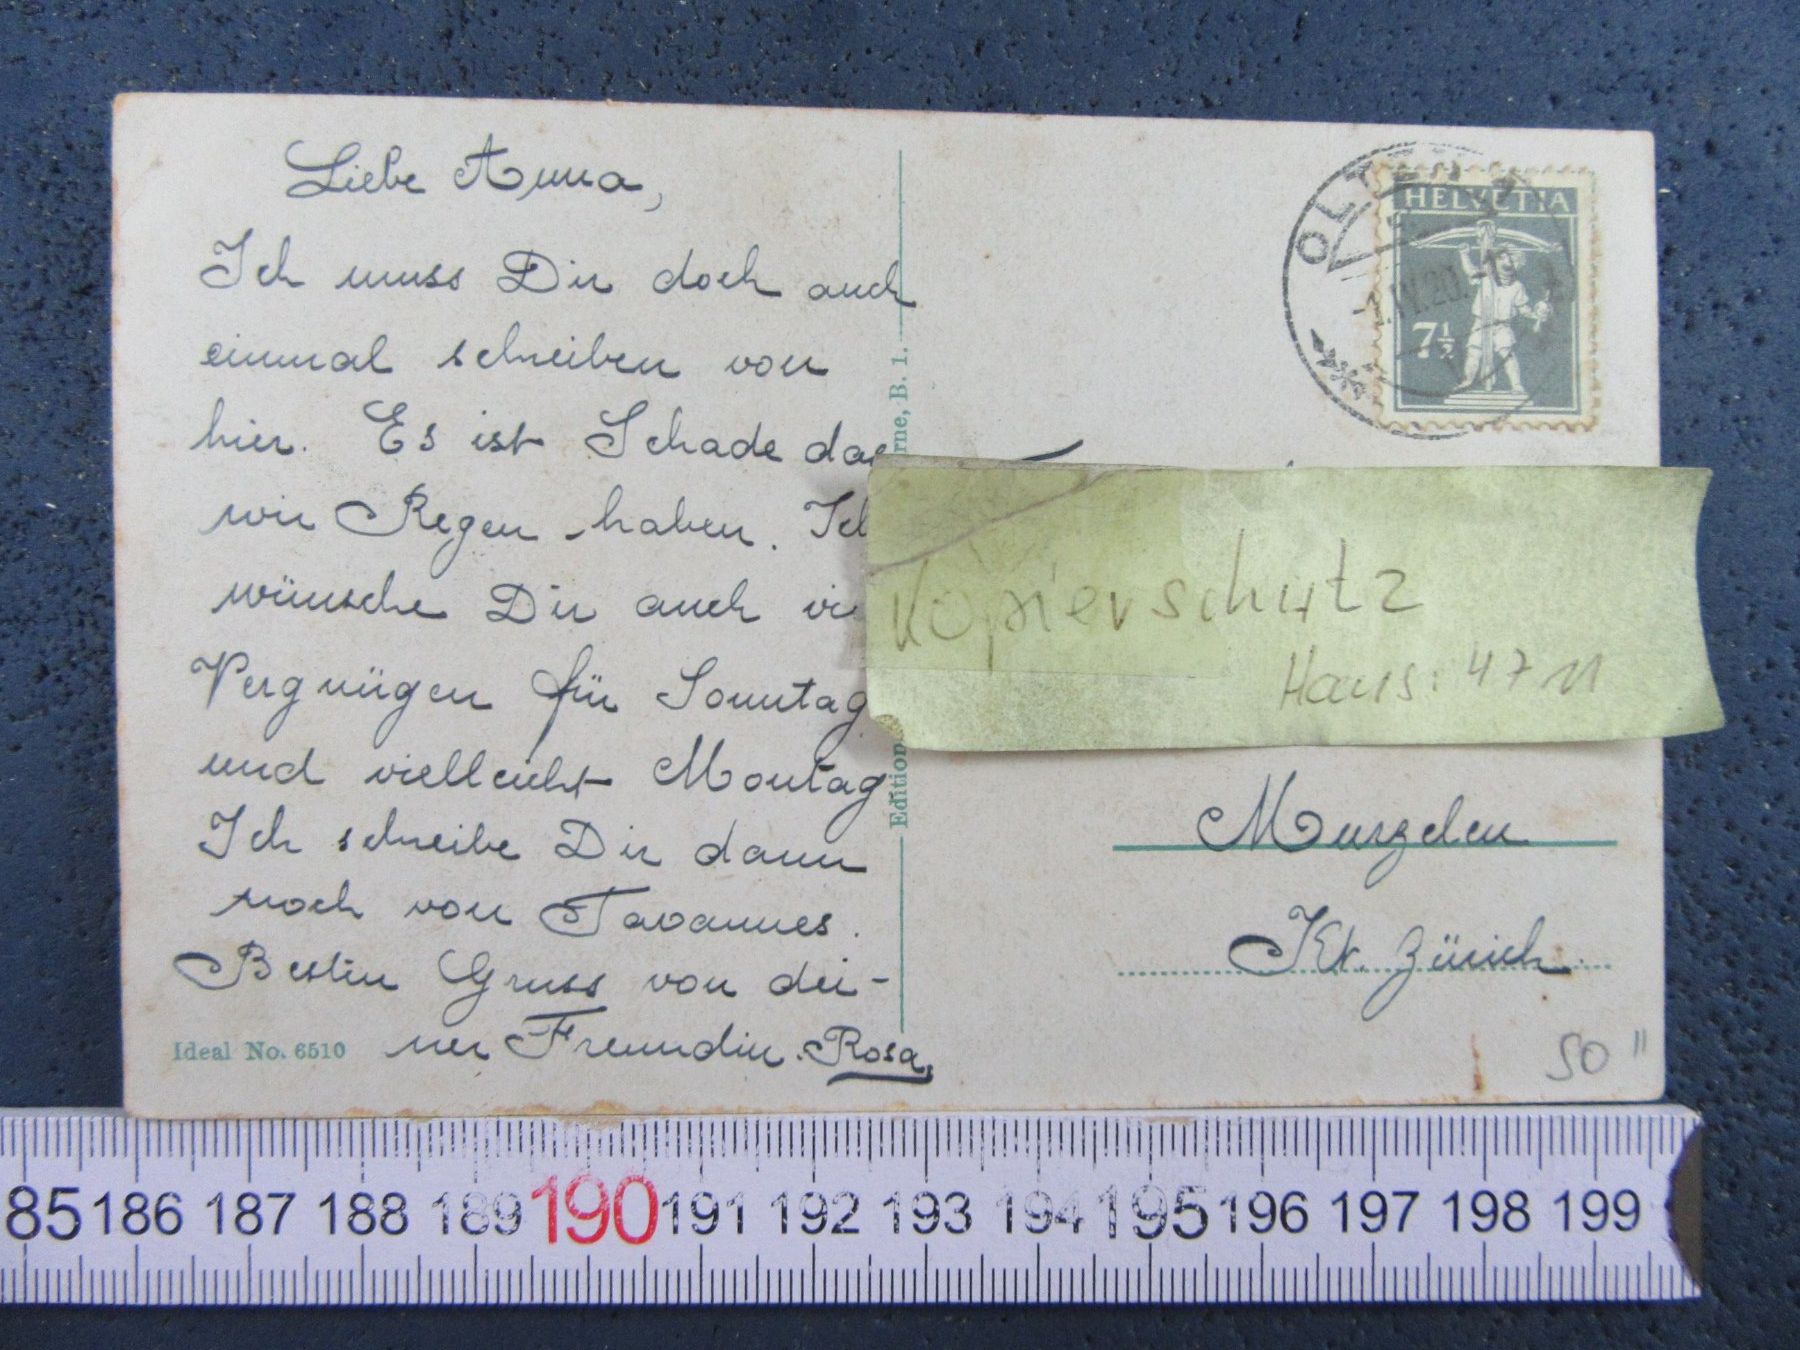 Liebe Anna,
Ich muss Dir doch auch
einmal schreiben von
hier. Es ist Schade das
wir Regen haben. Ich
wünsche Dir auch
Vergnügen für Sonntag
und vielleicht Montag
Ich schreibe Dir dann
noch von Tavannes.
Besten Gruss von dei-
ner Freundin. Rosa.
Ideal No. 6510
Edition
rne, B. 1.
OLTEN
HELVETIA
7½
Kopierschutz
Haus: 4711
Murzelen
Kt. Zürich
50 "
85 186 187 188 189 190 191 192 193 194 195 196 197 198 199